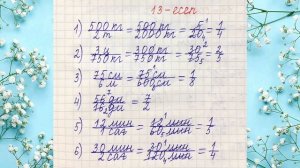 13-есеп
1) 500 кг / 2 т = 500 кг / 2000 кг = 5 / 20 = 1/4
2) 3 ц / 750 кг = 300 кг / 750 кг = 30 / 75 = 2/5
3) 75 см / 6 м = 75 см / 600 см = 1/8
4) 56 дм / = 7/2
5) 12 мин / 1 сағ = 12 мин / 60 мин = 1/5
6) 30 мин / 2 сағ = 30 мин / 120 мин = 1/4